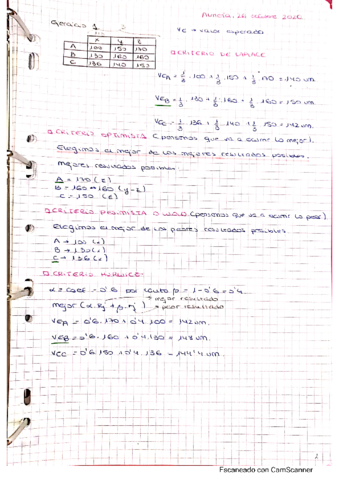 Ejercicio 1
VE → valor esperado
X Y Z
A 100 150 170
B 130 160 160
C 136 140 150
① CRITERIO DE LAPLACE
VEA = 1/3 · 100 + 1/3 · 150 + 1/3 · 170 = 140 um.
VEB = 1/3 · 130 + 1/3 · 160 + 1/3 · 160 = 150 um
VEC = 1/3 · 136 + 1/3 · 140 + 1/3 · 150 = 142 um.
② CRITERIO OPTIMISTA (pensamos que va a ocurrir lo mejor).
Elegimos el mejor de los mejores resultados posibles.
mejores resultados posibles
A = 170 (z)
B = 160 = 160 (y-z)
C = 150 (z)
③ CRITERIO PESIMISTA O WALD (pensamos que va a ocurrir lo peor).
elegimos el mejor de los peores resultados posibles.
A → 100 (x)
B → 130 (x)
C → 136 (x)
④ CRITERIO HURWICZ:
α = coef = 0'6 por tanto β = 1 - 0'6 = 0'4
mejor resultado
mejor (α · + β · ) peor resultado
VEA = 0'6 · 170 + 0'4 · 100 = 142 um.
VEB = 0'6 · 160 + 0'4 · 130 = 148 um.
VEC = 0'6 · 150 + 0'4 · 136 = 144'4 um.
1
Escaneado con CamScanner